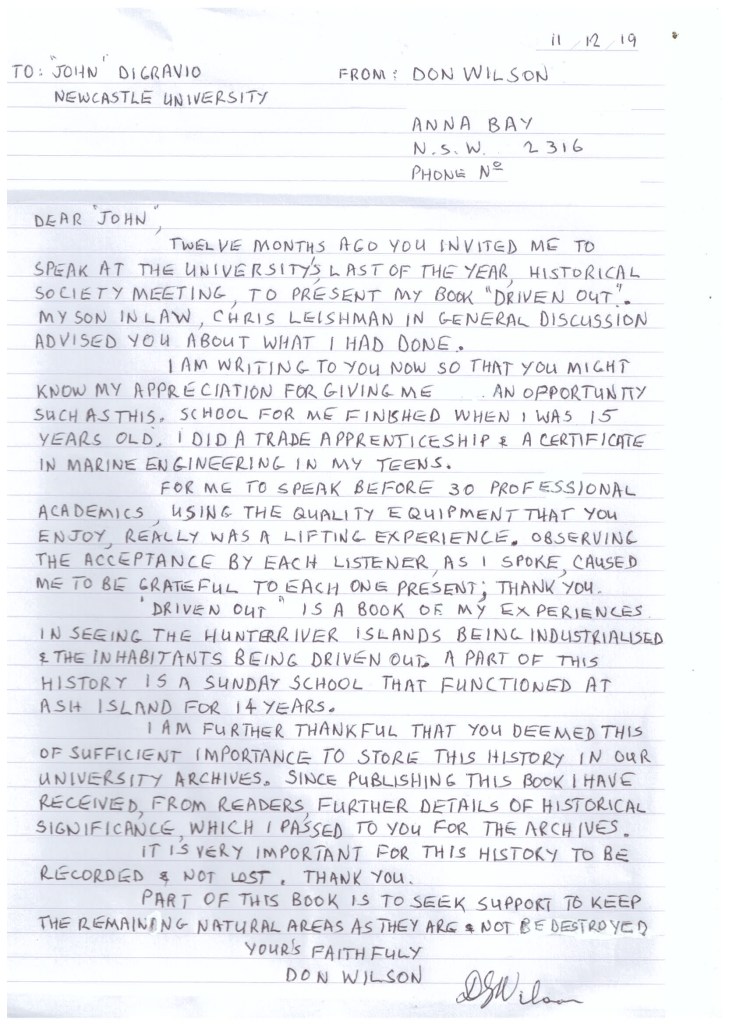 11/12/19
TO: "JOHN" DIGRAVIO FROM: DON WILSON
NEWCASTLE UNIVERSITY
ANNA BAY
N.S.W. 2316
PHONE Nº
DEAR "JOHN",
TWELVE MONTHS AGO YOU INVITED ME TO
SPEAK AT THE UNIVERSITY'S LAST OF THE YEAR, HISTORICAL
SOCIETY MEETING, TO PRESENT MY BOOK "DRIVEN OUT".
MY SON IN LAW, CHRIS LEISHMAN IN GENERAL DISCUSSION
ADVISED YOU ABOUT WHAT I HAD DONE.
I AM WRITING TO YOU NOW SO THAT YOU MIGHT
KNOW MY APPRECIATION FOR GIVING ME AN OPPORTUNITY
SUCH AS THIS. SCHOOL FOR ME FINISHED WHEN I WAS 15
YEARS OLD. I DID A TRADE APPRENTICESHIP & A CERTIFICATE
IN MARINE ENGINEERING IN MY TEENS.
FOR ME TO SPEAK BEFORE 30 PROFESSIONAL
ACADEMICS, USING THE QUALITY EQUIPMENT THAT YOU
ENJOY, REALLY WAS A LIFTING EXPERIENCE. OBSERVING
THE ACCEPTANCE BY EACH LISTENER, AS I SPOKE, CAUSED
ME TO BE GRATEFUL TO EACH ONE PRESENT; THANK YOU.
"DRIVEN OUT" IS A BOOK OF MY EXPERIENCES
IN SEEING THE HUNTER RIVER ISLANDS BEING INDUSTRIALISED
& THE INHABITANTS BEING DRIVEN OUT. A PART OF THIS
HISTORY IS A SUNDAY SCHOOL THAT FUNCTIONED AT
ASH ISLAND FOR 14 YEARS.
I AM FURTHER THANKFUL THAT YOU DEEMED THIS
OF SUFFICIENT IMPORTANCE TO STORE THIS HISTORY IN OUR
UNIVERSITY ARCHIVES. SINCE PUBLISHING THIS BOOK I HAVE
RECEIVED, FROM READERS, FURTHER DETAILS OF HISTORICAL
SIGNIFICANCE, WHICH I PASSED TO YOU FOR THE ARCHIVES.
IT IS VERY IMPORTANT FOR THIS HISTORY TO BE
RECORDED & NOT LOST. THANK YOU.
PART OF THIS BOOK IS TO SEEK SUPPORT TO KEEP
THE REMAINING NATURAL AREAS AS THEY ARE & NOT BE DESTROYED
YOUR'S FAITHFULY
DON WILSON DGWilson